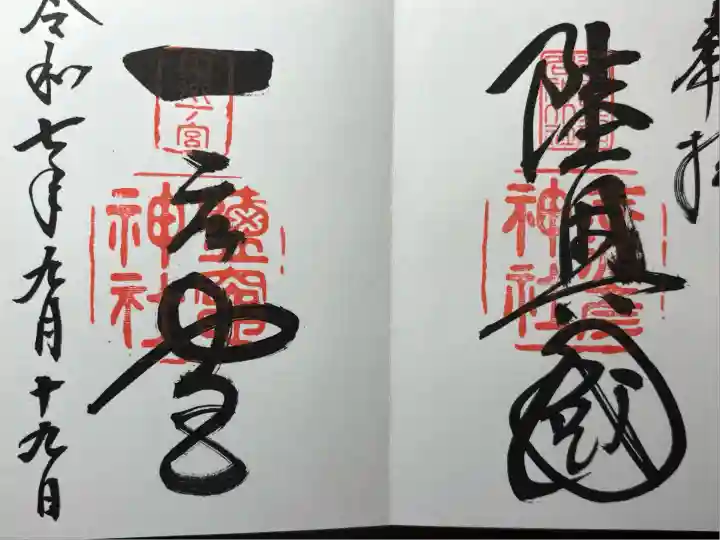 奉拝
陸奥國
志波彦
神社
一之宮
一ノ宮
鹽竈
神社
令和七年九月十九日